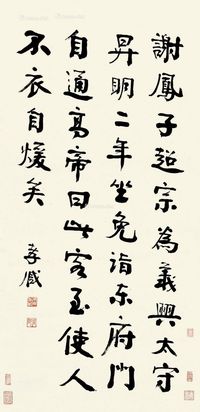 謝鳳子超宗為義興太守
昇明二年坐免詣東府門
自通高帝曰此客至使人
不衣自煖矣
孝臧